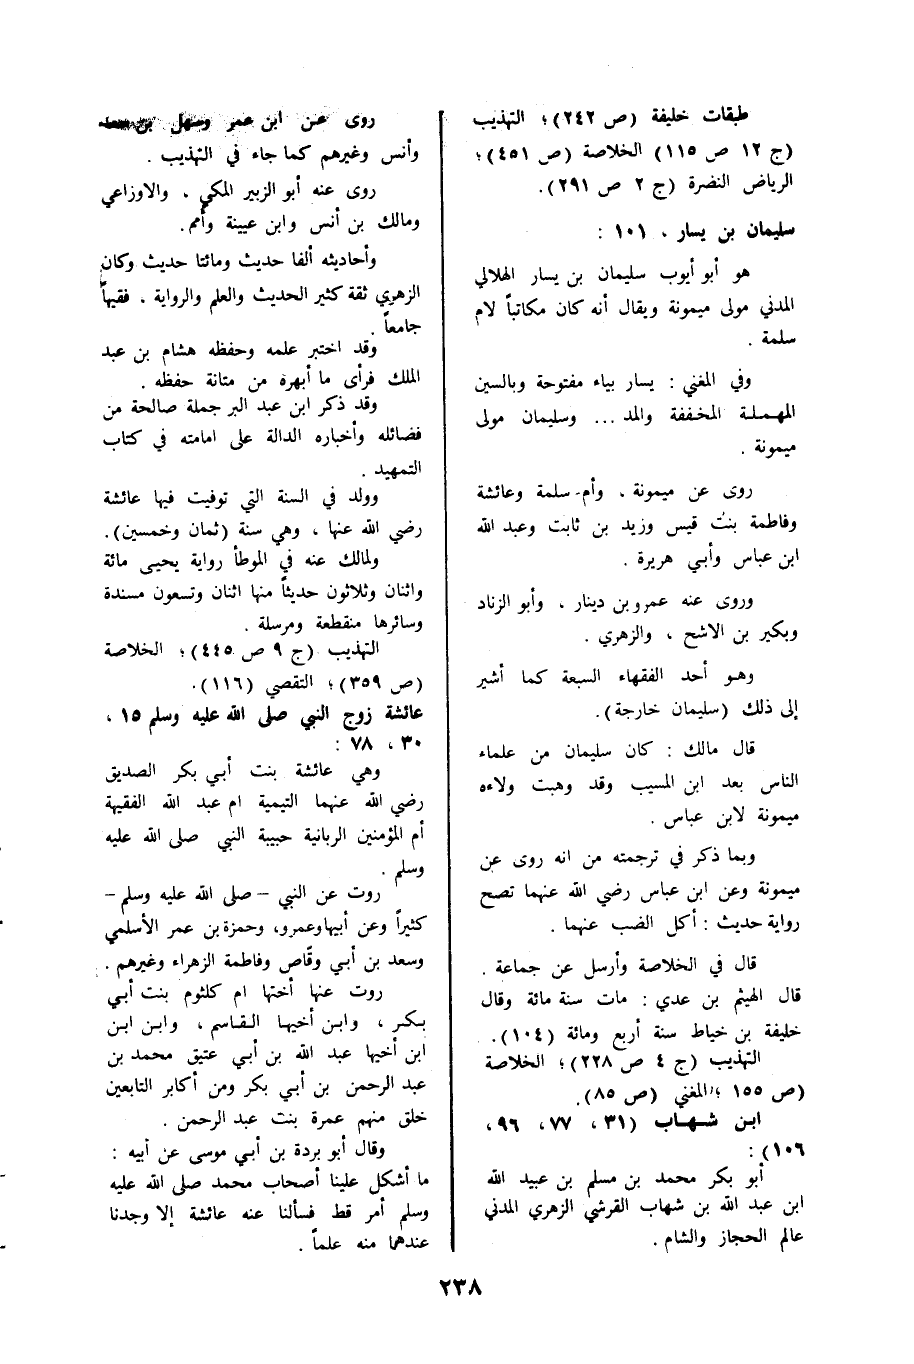 طبقات خليفة (ص ٢٤٢)؛ التهذيب
(ج ١٢ ص ١١٥) الخلاصة (ص ٤٥١)؛
الرياض النضرة (ج ٢ ص ٢٩١).
سليمان بن يسار ، ١٠١ :
هو أبو أيوب سليمان بن يسار الهلالي
المدني مولى ميمونة ويقال أنه كان مكاتباً لام
سلمة .
وفي المغني : يسار بياء مفتوحة وبالسين
المهملة المخففة والمد ... وسليمان مولى
ميمونة .
روى عن ميمونة ، وأم سلمة وعائشة
وفاطمة بنت قيس وزيد بن ثابت وعبد الله
ابن عباس وأبي هريرة .
وروى عنه عمرو بن دينار ، وأبو الزناد
وبكير بن الاشح ، والزهري .
وهو أحد الفقهاء السبعة كما أشير
إلى ذلك (سليمان خارجة).
قال مالك : كان سليمان من علماء
الناس بعد ابن المسيب وقد وهبت ولاءه
ميمونة لابن عباس .
وبما ذكر في ترجمته من انه روى عن
ميمونة وعن ابن عباس رضي الله عنهما تصح
رواية حديث : أكل الضب عنهما .
قال في الخلاصة وأرسل عن جماعة .
قال الهيثم بن عدي : مات سنة مائة وقال
خليفة بن خياط سنة أربع ومائة (١٠٤).
التهذيب (ج ٤ ص ٢٢٨)؛ الخلاصة
(ص ١٥٥ ؛ المغني (ص ٨٥).
ابن شهاب (٣١ ، ٧٧ ، ٩٦ ،
١٠٦) :
أبو بكر محمد بن مسلم بن عبيد الله
ابن عبد الله بن شهاب القرشي الزهري المدني
عالم الحجاز والشام .
روى عن ابن عمر وسهل بن سعد
وأنس وغيرهم كما جاء في التهذيب .
روى عنه أبو الزبير المكي ، والاوزاعي
ومالك بن أنس وابن عيينة وأمم.
وأحاديثه ألفا حديث ومائتا حديث وكان
الزهري ثقة كثير الحديث والعلم والرواية ، فقيهاً
جامعاً .
وقد اختبر علمه وحفظه هشام بن عبد
الملك فرأى ما أبهره من متانة حفظه .
وقد ذكر ابن عبد البر جملة صالحة من
فضائله وأخباره الدالة على امامته في كتاب
التمهيد .
وولد في السنة التي توفيت فيها عائشة
رضي الله عنها ، وهي سنة (ثمان وخمسين).
ولمالك عنه في الموطأ رواية يحيى مائة
واثنان وثلاثون حديثاً منها اثنان وتسعون مسندة
وسائرها منقطعة ومرسلة .
التهذيب (ج ٩ ص ٤٤٥)؛ الخلاصة
(ص ٣٥٩)؛ التقصي (١١٦).
عائشة زوج النبي صلى الله عليه وسلم ١٥ ،
٣٠ ، ٧٨ :
وهي عائشة بنت أبي بكر الصديق
رضي الله عنهما التيمية ام عبد الله الفقيهة
أم المؤمنين الربانية حبيبة النبي صلى الله عليه
وسلم .
روت عن النبي – صلى الله عليه وسلم –
كثيراً وعن أبيها وعمرو، وحمزة بن عمر الأسلمي
وسعد بن أبي وقاص وفاطمة الزهراء وغيرهم .
روت عنها أختها ام كلثوم بنت أبي
بكر ، وابن أخيها القاسم ، وابن ابن
ابن أخيها عبد الله بن أبي عتيق محمد بن
عبد الرحمن بن أبي بكر ومن أكابر التابعين
خلق منهم عمرة بنت عبد الرحمن .
وقال أبو بردة بن أبي موسى عن أبيه :
ما أشكل علينا أصحاب محمد صلى الله عليه
وسلم أمر قط فسألنا عنه عائشة إلا وجدنا
عندهما منه علماً .
٢٣٨